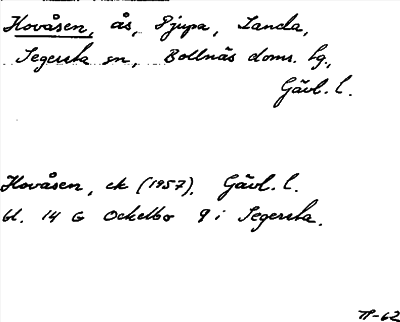 Hovåsen, ås, Djupa, Landa,
Segersta sn, Bollnäs doms. hg.,
Gävl. l.
Hovåsen, ek (1957). Gävl. l.
bl. 14 G Ockelbo 9 i Segersta.